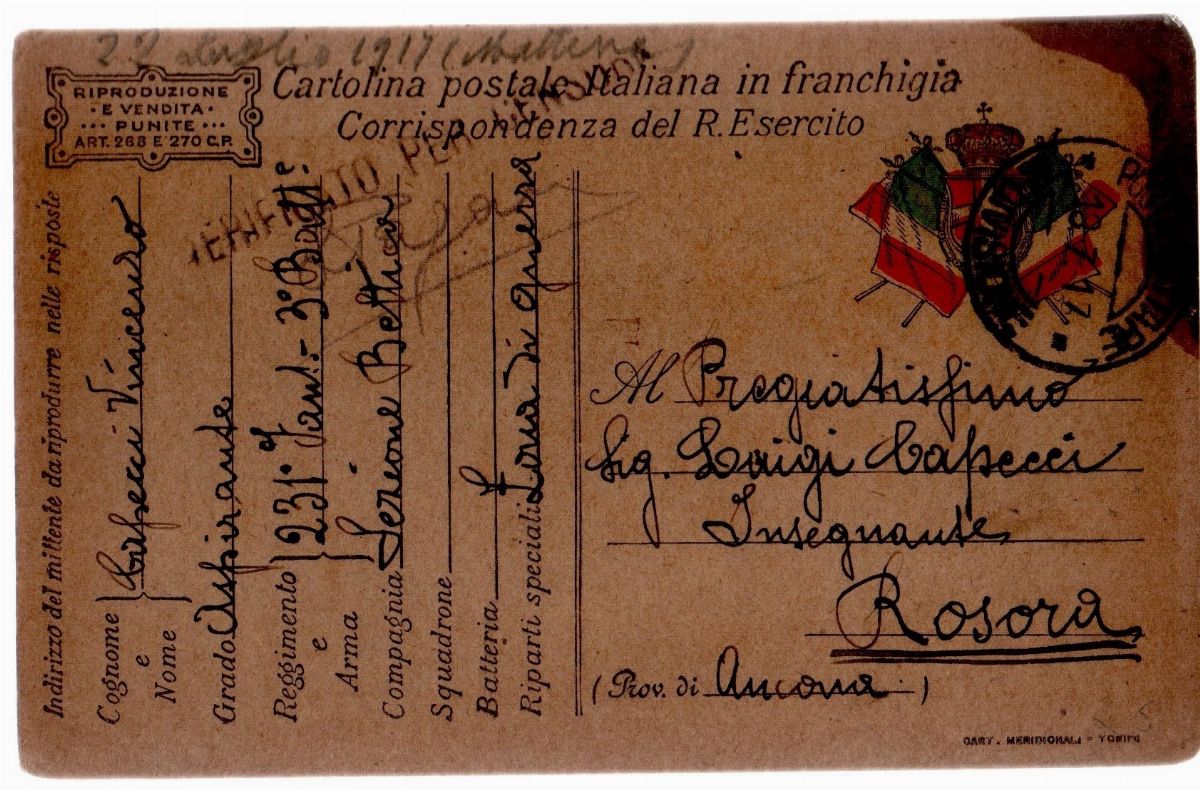 22 Luglio 1917 (Mattina)
RIPRODUZIONE
E VENDITA
PUNITE
ART. 268 E 270 C.P.
Cartolina postale Italiana in franchigia
Corrispondenza del R. Esercito
VERIFICATO PER CENSURA
Indirizzo del mittente da riprodurre nelle risposte
Cognome e Nome Capecci Vincenzo
Grado Aspirante
Reggimento e Arma 231º Fant. - 3º Batt.
Compagnia Sezione Bettica
Squadrone
Batteria
Riparti speciali Zona di guerra
POSTA MILITARE
Al Pregiatissimo
Sig. Luigi Capecci
Insegnante
Rosora
(Prov. di Ancona)
CART. MERIDIONALI - TORINO